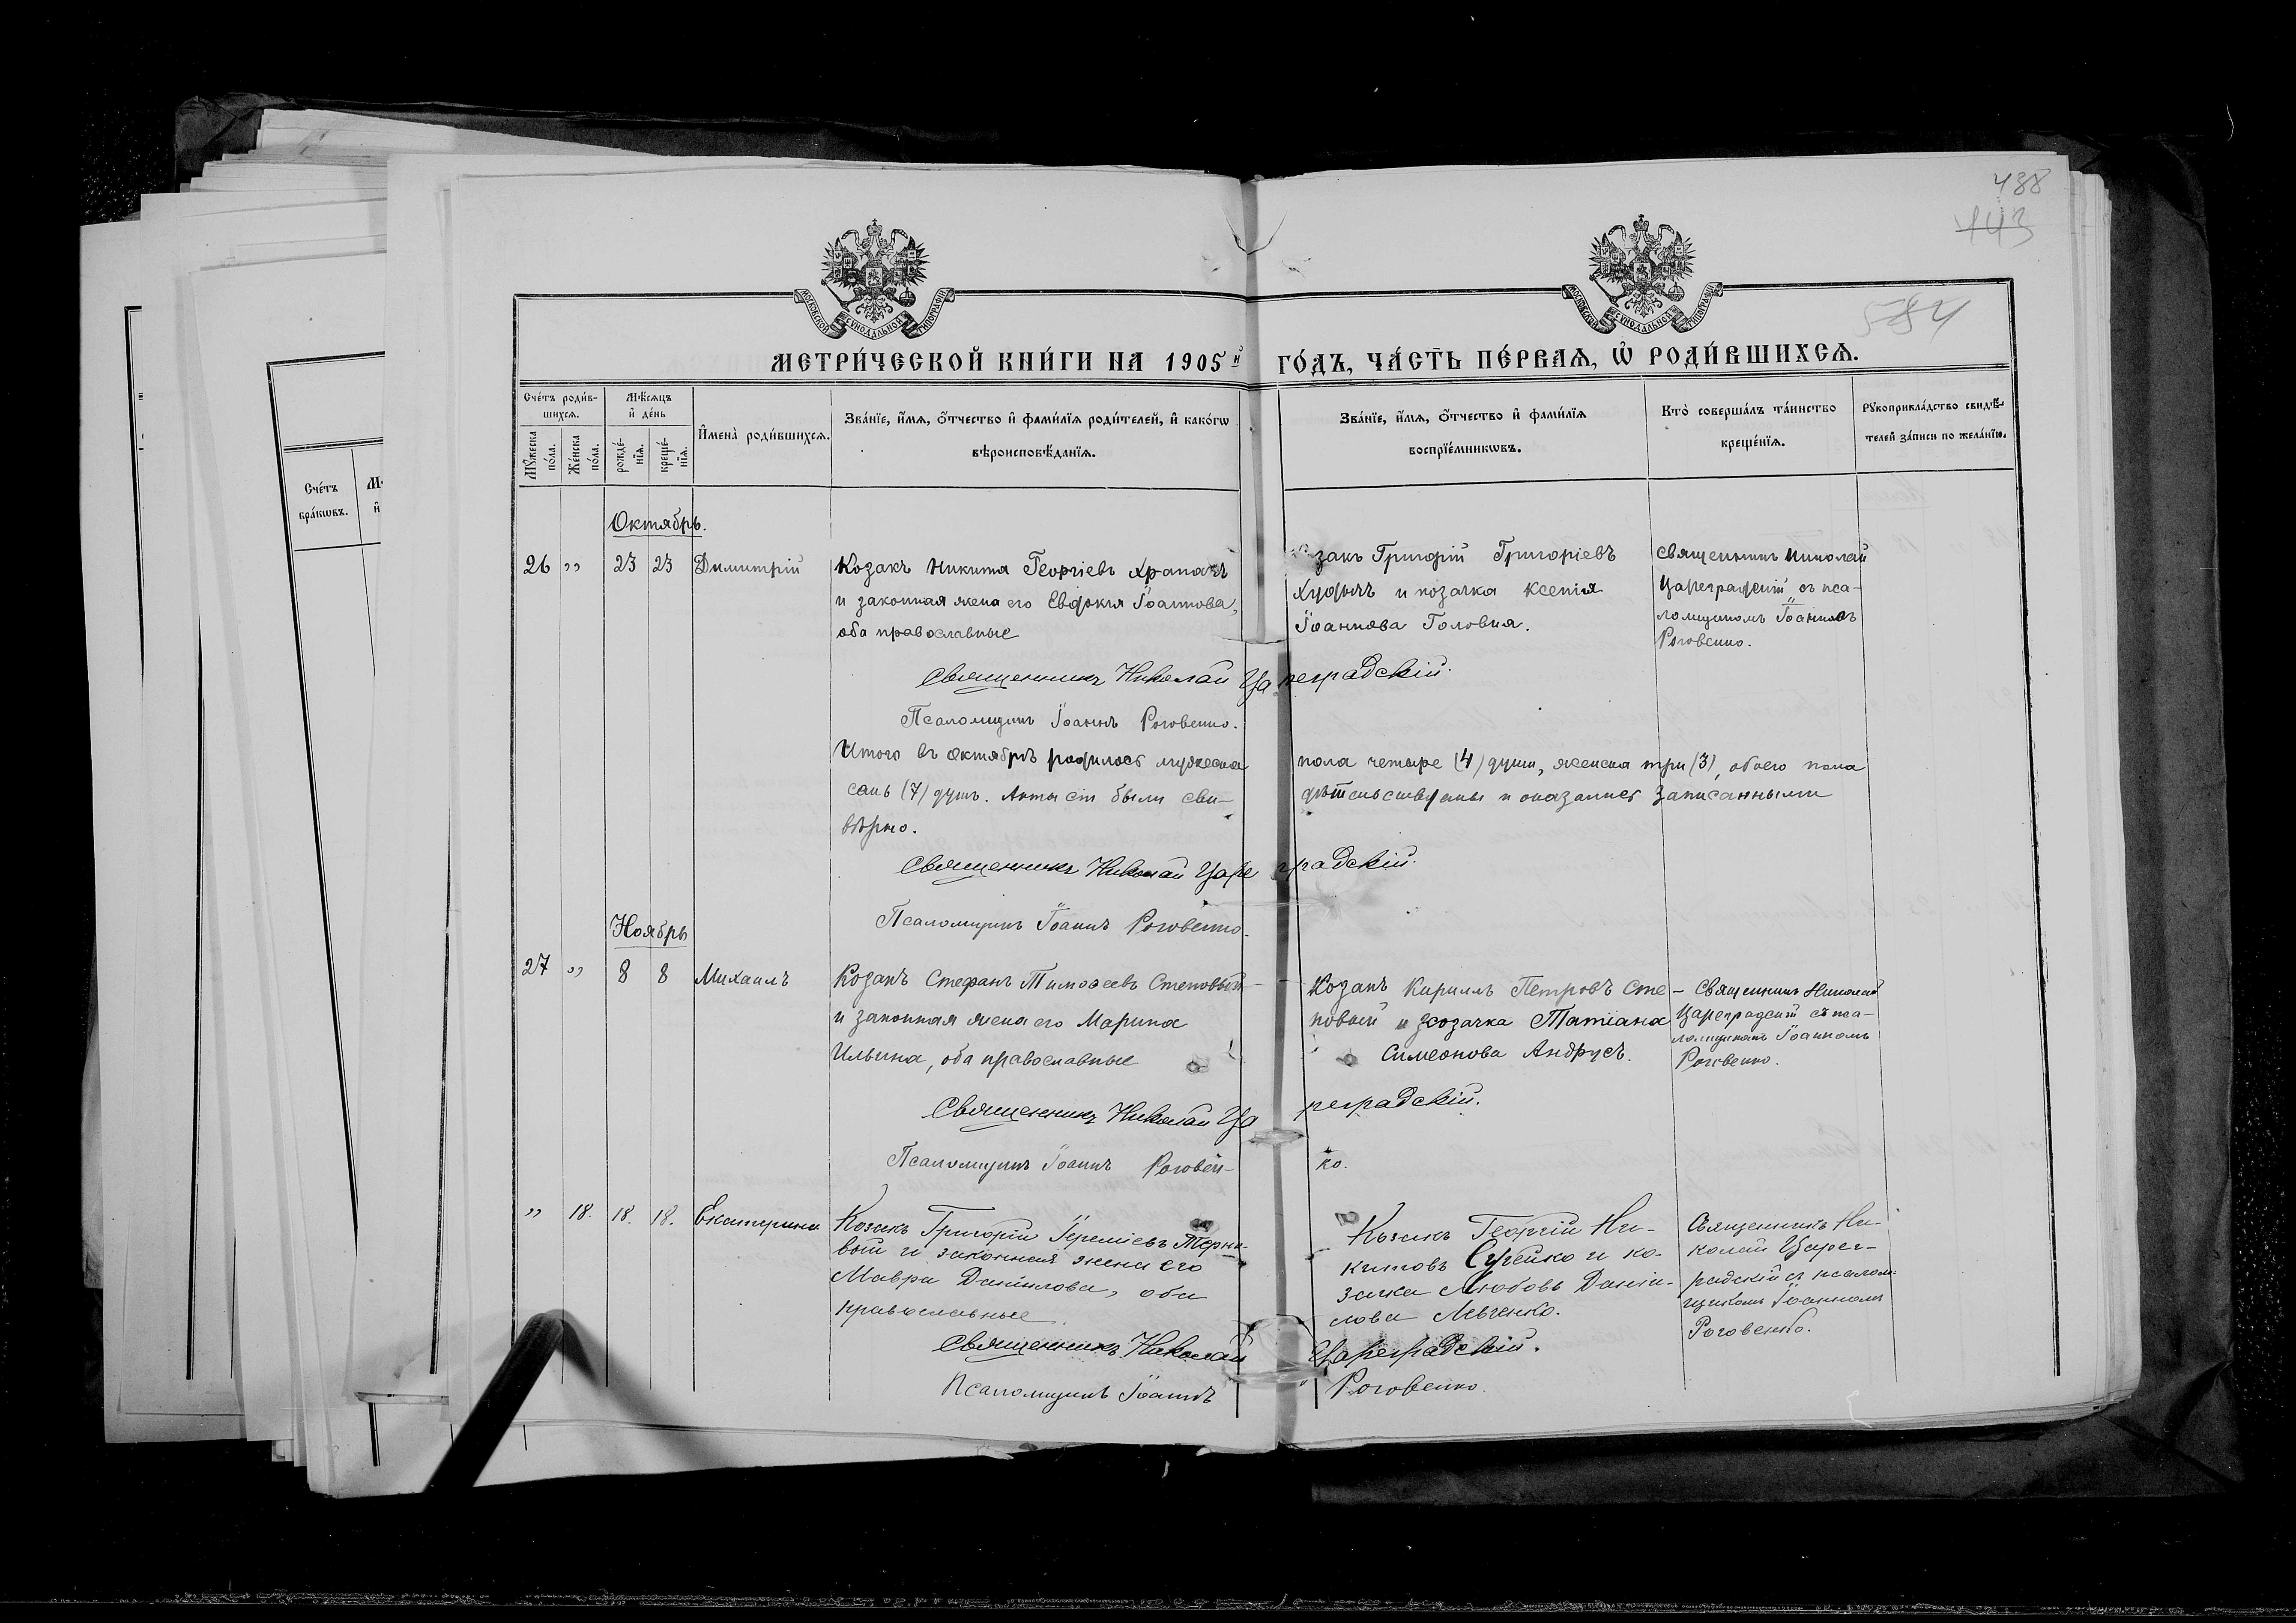 438
143
584
МОСКОВСКОЙ СѴНОДАЛЬНОЙ ТИПОГРАФІИ
МОСКОВСКОЙ СѴНОДАЛЬНОЙ ТИПОГРАФІИ
МЕТРИ́ЧЕСКОЙ КНИ́ГИ НА 1905й ГО́ДЪ, ЧА́СТЬ ПЕ́РВАѦ, Ѡ҆ РОДИ́ВШИХСѦ.
Сче́тъ роди́в-
шихсѧ.
Мѣ́сѧцъ
и҆ де́нь
Мꙋ́жеска
по́ла.
Же́нска
по́ла.
рожде́-
нїѧ.
креще́-
нїѧ.
И҆мена̀ роди́вшихсѧ.
Зва́нїе, и҆́мѧ, ѻ҆́тчество и҆ фами́лїѧ роди́телей, и҆ како́гѡ
вѣроисповѣ́данїѧ.
Зва́нїе, и҆́мѧ, ѻ҆́тчество и҆ фами́лїѧ
воспрїе́мникѡвъ.
Кто̀ соверша́лъ та́инство
креще́нїѧ.
Рꙋкоприкла́дство свидѣ́-
телей за́писи по жела́нїю.
Сче́тъ
бра́кѡвъ.
Октябрь.
26 " 23 23 Димитрій
Козакъ Никита Георгіевъ Храпачъ
и законная жена его Евдокія Іоаннова,
оба православные
закъ Григорій Григоріевъ
и козачка Ксенія
Іоаннова Головня.
Священникъ Николай
Цареградскій съ пса-
ломщикомъ Іоанномъ
Роговенко.
Священникъ Николай Цареградскій.
Псаломщикъ Іоаннъ Роговенко.
Итого въ октябрѣ родилось мужеска пола четыре (4) души, женска три (3), обоего пола
семь (7) душъ. Акты сіи были сви- дѣтельствуемы и оказались записанными
вѣрно.
Священникъ Николай Цареградскій.
Псаломщикъ Іоаннъ Роговенко.
Ноябрь
27 " 8 8 Михаилъ
Козакъ Стефанъ Тимоѳеевъ Степовый
и законная жена его Марина
Ильина, оба православные
Козакъ Кириллъ Петровъ Сте-
повый и козачка Татіана
Симеонова Андрусъ.
Священникъ Николай
Цареградскій съ пса-
ломщикомъ Іоанномъ
Роговенко.
Священникъ Николай Цареградскій.
Псаломщикъ Іоаннъ Роговен- ко.
" 18. 18. 18. Екатерина
Козакъ Григорій Іереміевъ Терно-
вый и законная жена его
Мавра Даніилова, оба
православные.
Козакъ Георгій Ни-
китовъ и ко-
зачка Любовь Даніи-
лова Левченко.
Священникъ Ни-
колай Царег-
радскій съ псалом-
щикомъ Іоанномъ
Роговенко.
Священникъ Николай Цареградскій.
Псаломщикъ Іоаннъ Роговенко.